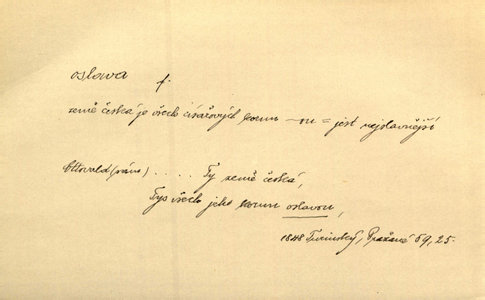 oslava f.
země česká je všech císařových korun –ou = jest nejslavnější
Ottovald (ráno) . . . . . Ty země česká,
Tys všech jeho korun oslavou,
1848 Turinský, Pražané 59, 25.